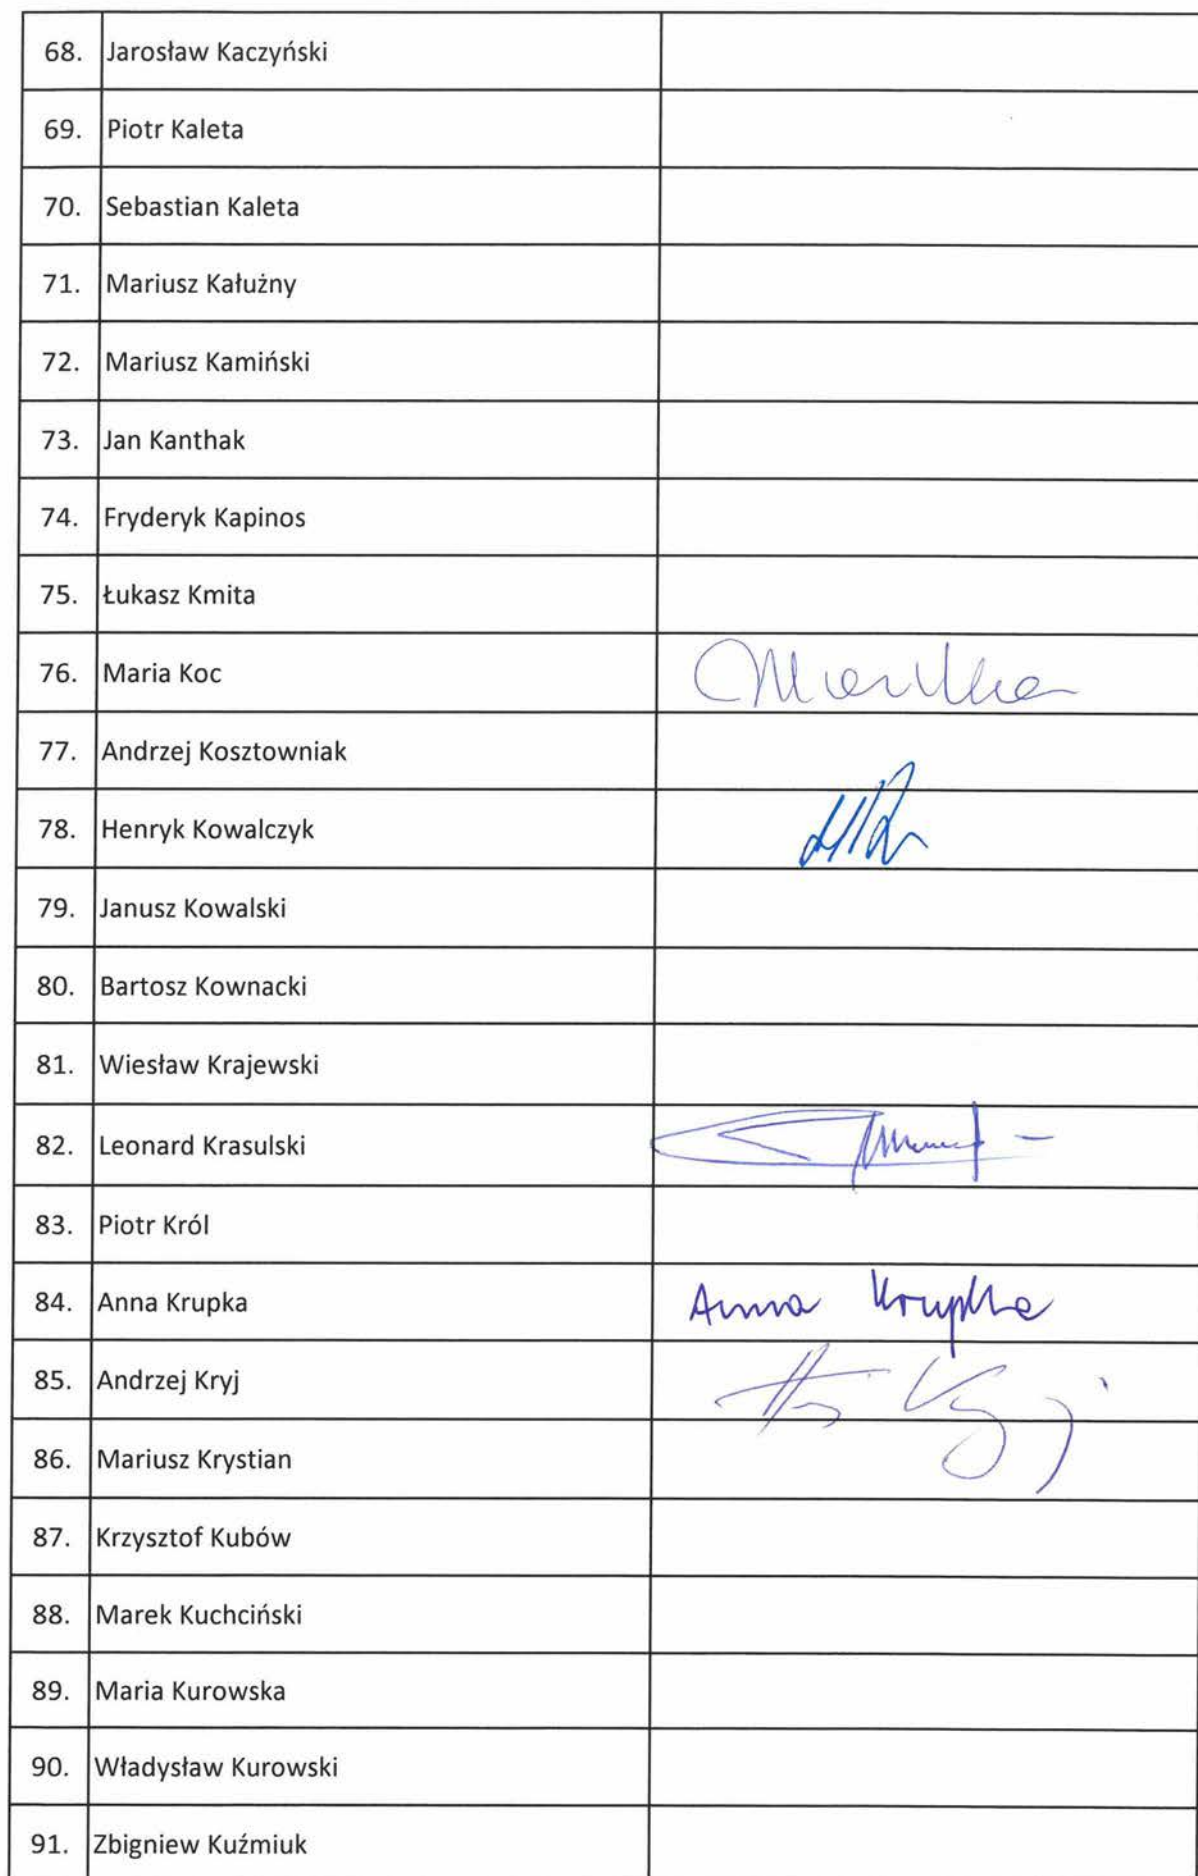 68. Jarosław Kaczyński
69. Piotr Kaleta
70. Sebastian Kaleta
71. Mariusz Kałużny
72. Mariusz Kamiński
73. Jan Kanthak
74. Fryderyk Kapinos
75. Łukasz Kmita
76. Maria Koc
77. Andrzej Kosztowniak
78. Henryk Kowalczyk
79. Janusz Kowalski
80. Bartosz Kownacki
81. Wiesław Krajewski
82. Leonard Krasulski
83. Piotr Król
84. Anna Krupka Anna Krupka
85. Andrzej Kryj
86. Mariusz Krystian
87. Krzysztof Kubów
88. Marek Kuchciński
89. Maria Kurowska
90. Władysław Kurowski
91. Zbigniew Kuźmiuk